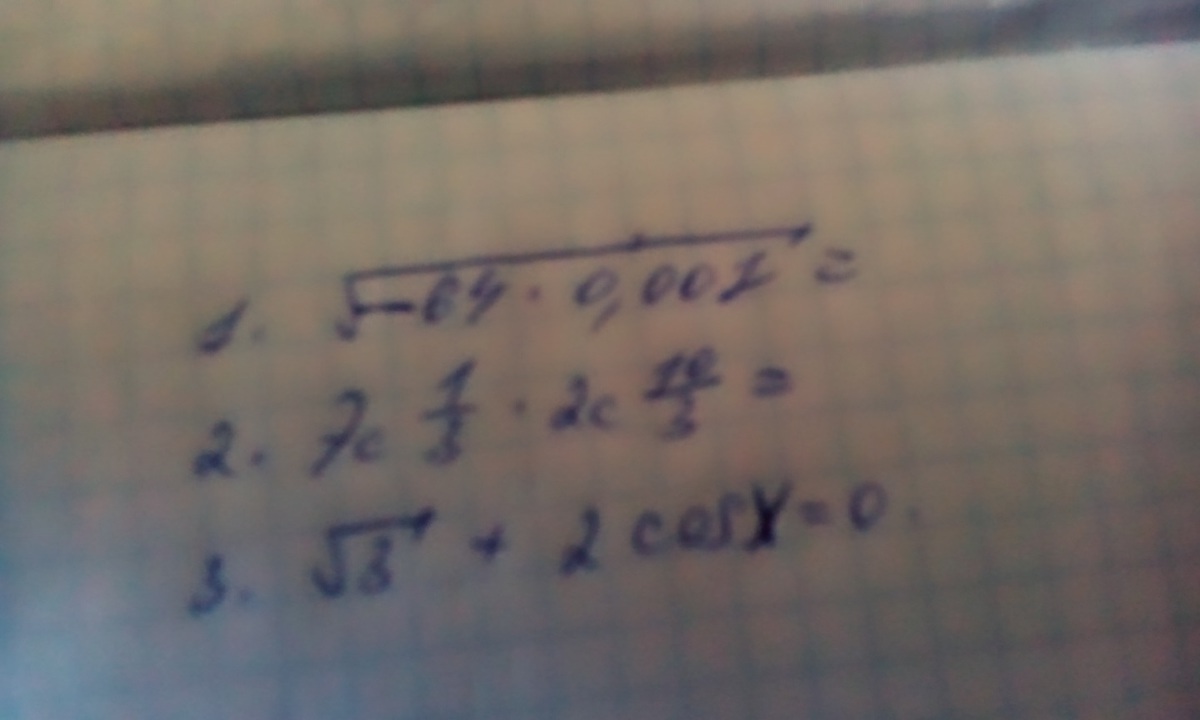 1. √-64 · 0,001 =
2. 7c 1/3 · 2c 10/3 =
3. √3 + 2 cosx = 0.